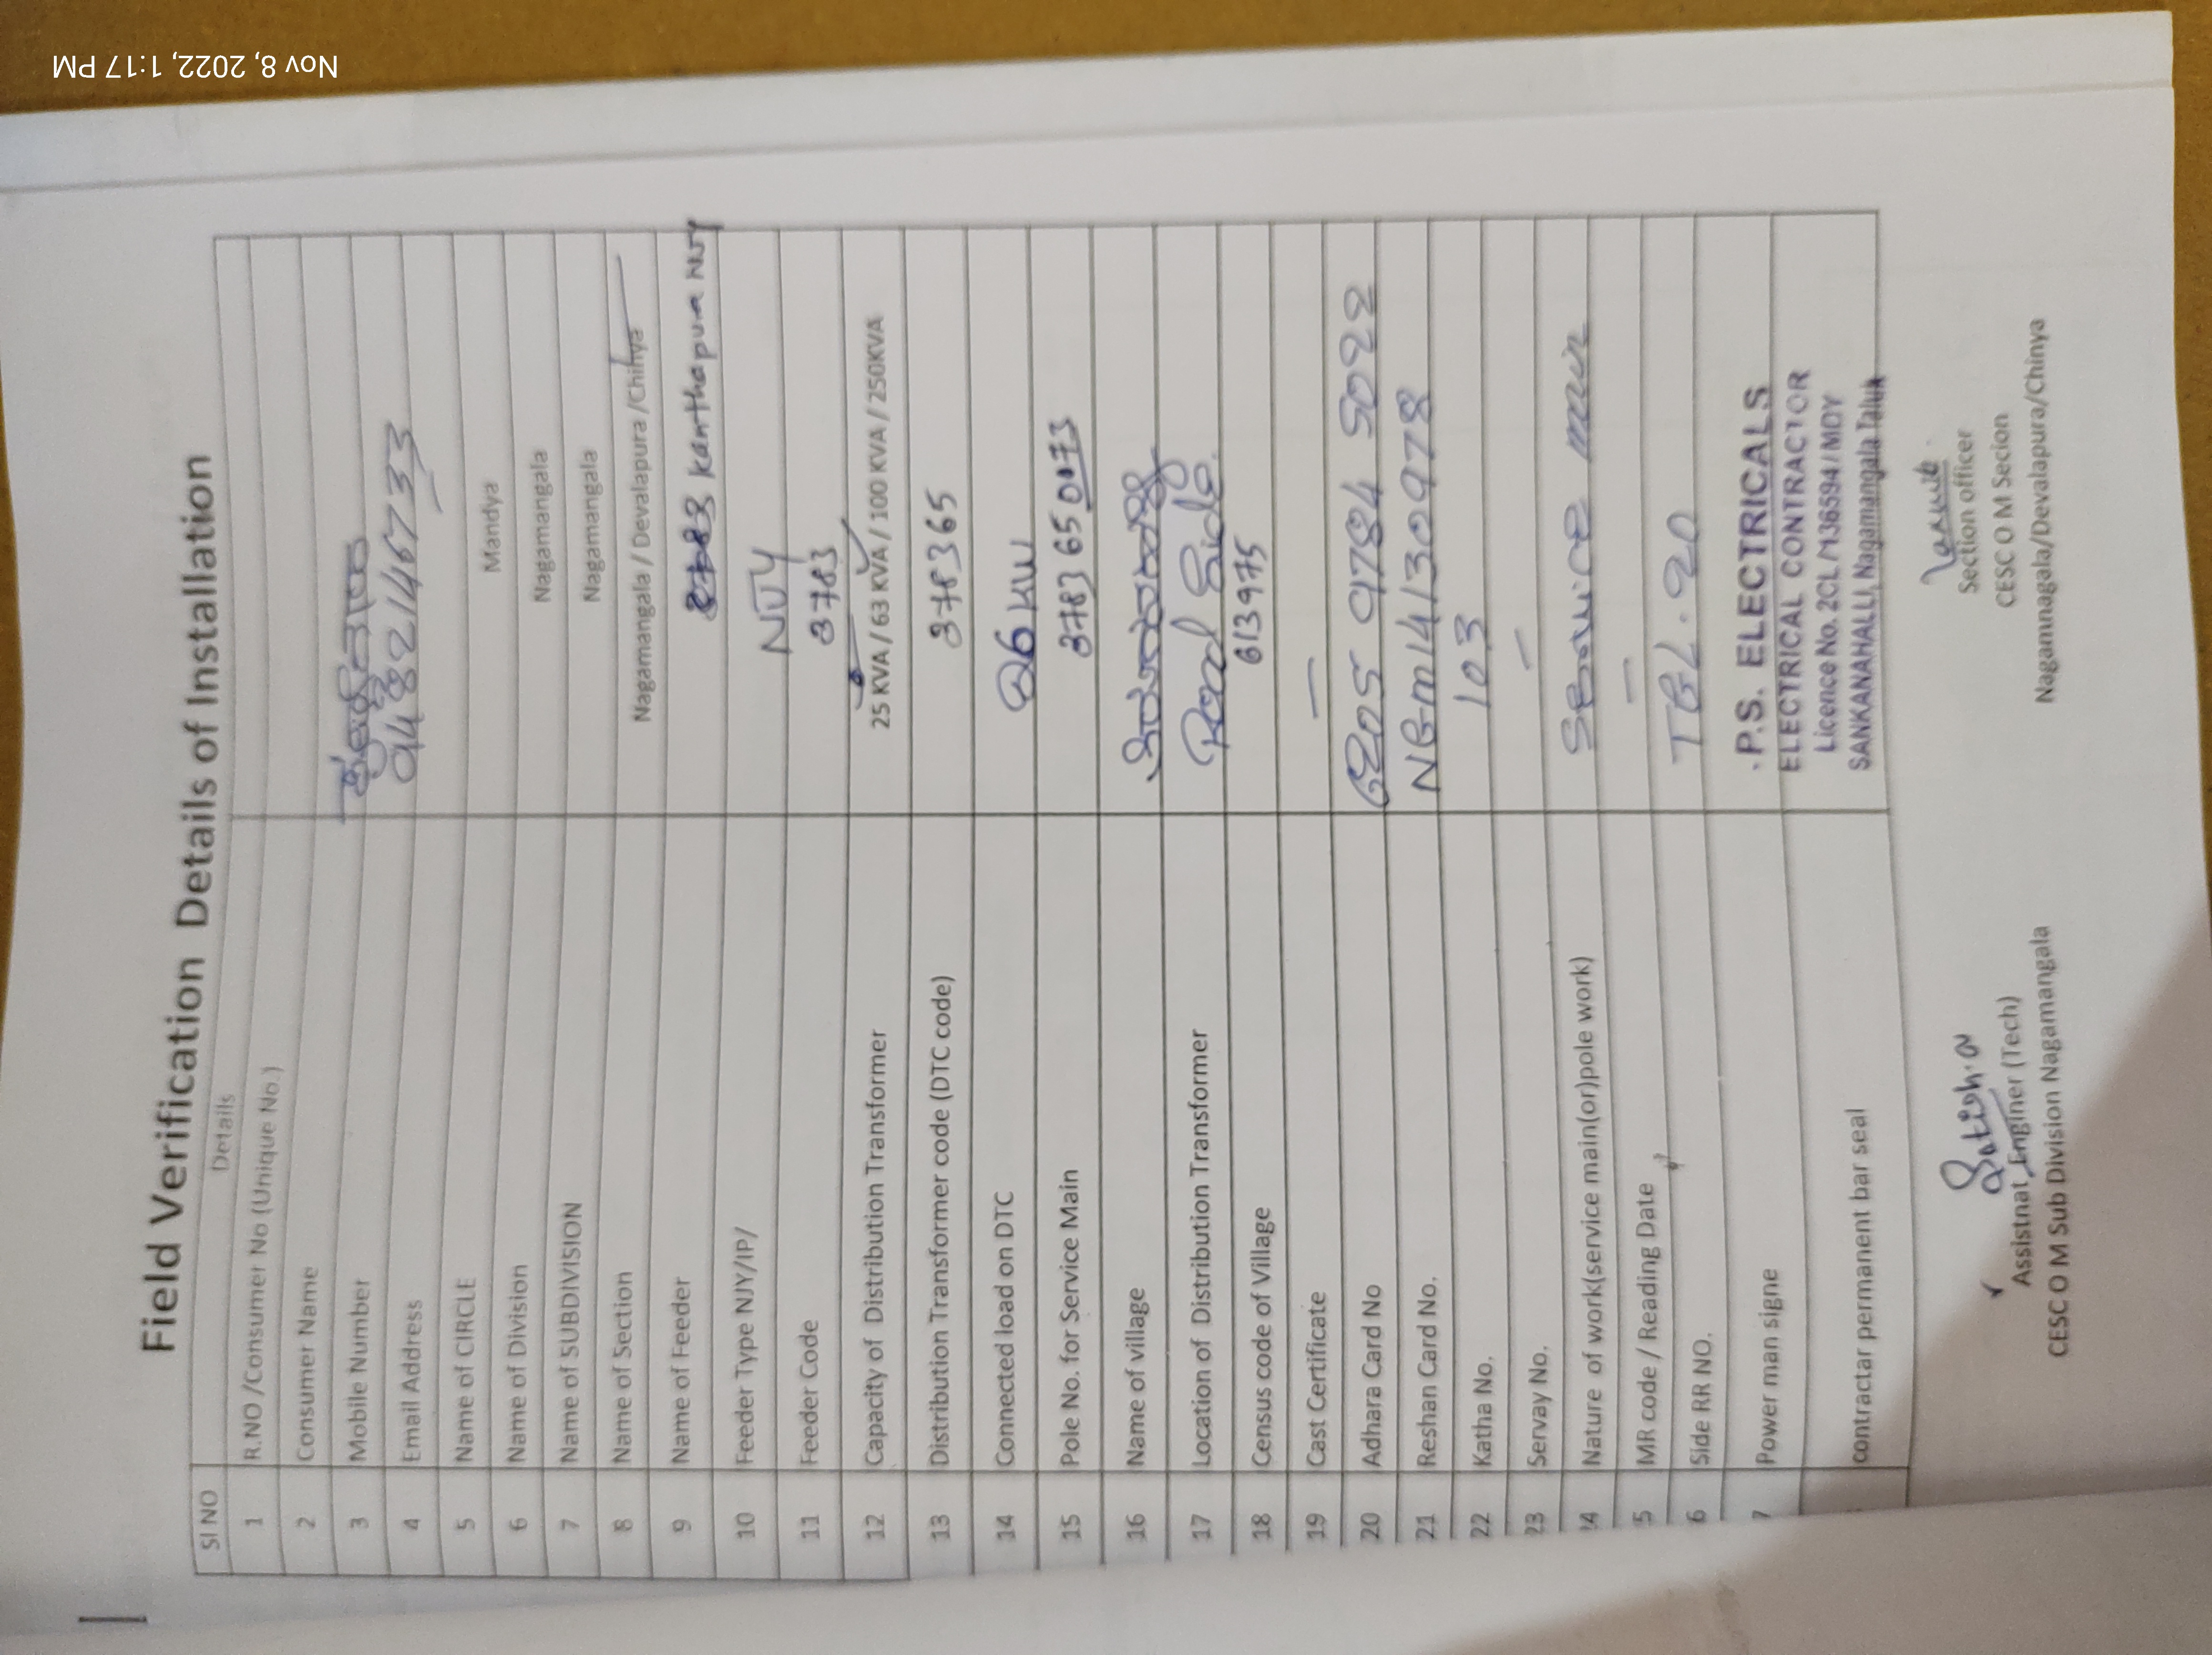 Nov 8, 2022, 1:17 PM
Field Verification Details of Installation
SI NO Details
1 R.NO /Consumer No (Unique No.)
2 Consumer Name
3 Mobile Number 9482146733
4 Email Address
5 Name of CIRCLE Mandya
6 Name of Division Nagamangala
7 Name of SUBDIVISION Nagamangala
8 Name of Section Nagamangala / Devalapura /Chinya
9 Name of Feeder Kanthapura NJY
10 Feeder Type NJY/IP/ NJY
11 Feeder Code 3783
12 Capacity of Distribution Transformer 25 KVA / 63 KVA / 100 KVA / 250KVA
13 Distribution Transformer code (DTC code) 378365
14 Connected load on DTC 26 KW
15 Pole No. for Service Main 3783 65 0073
16 Name of village
17 Location of Distribution Transformer Road Side
18 Census code of Village 613975
19 Cast Certificate —
20 Adhara Card No 9784 5022
21 Reshan Card No. NGM14130978
22 Katha No. 103
23 Servay No. —
24 Nature of work(service main(or)pole work) Service main
5 MR code / Reading Date —
6 Side RR NO. TBL.20
7 Power man signe
contractar permanent bar seal
P.S. ELECTRICALS
ELECTRICAL CONTRACTOR
Licence No. 2CL/M36594/MDY
SANKANAHALLI, Nagamangala Taluk
Satish.a
Assistnat Enginer (Tech)
CESC O M Sub Division Nagamangala
Section officer
CESC O M Secion
Nagamnagala/Devalapura/Chinya